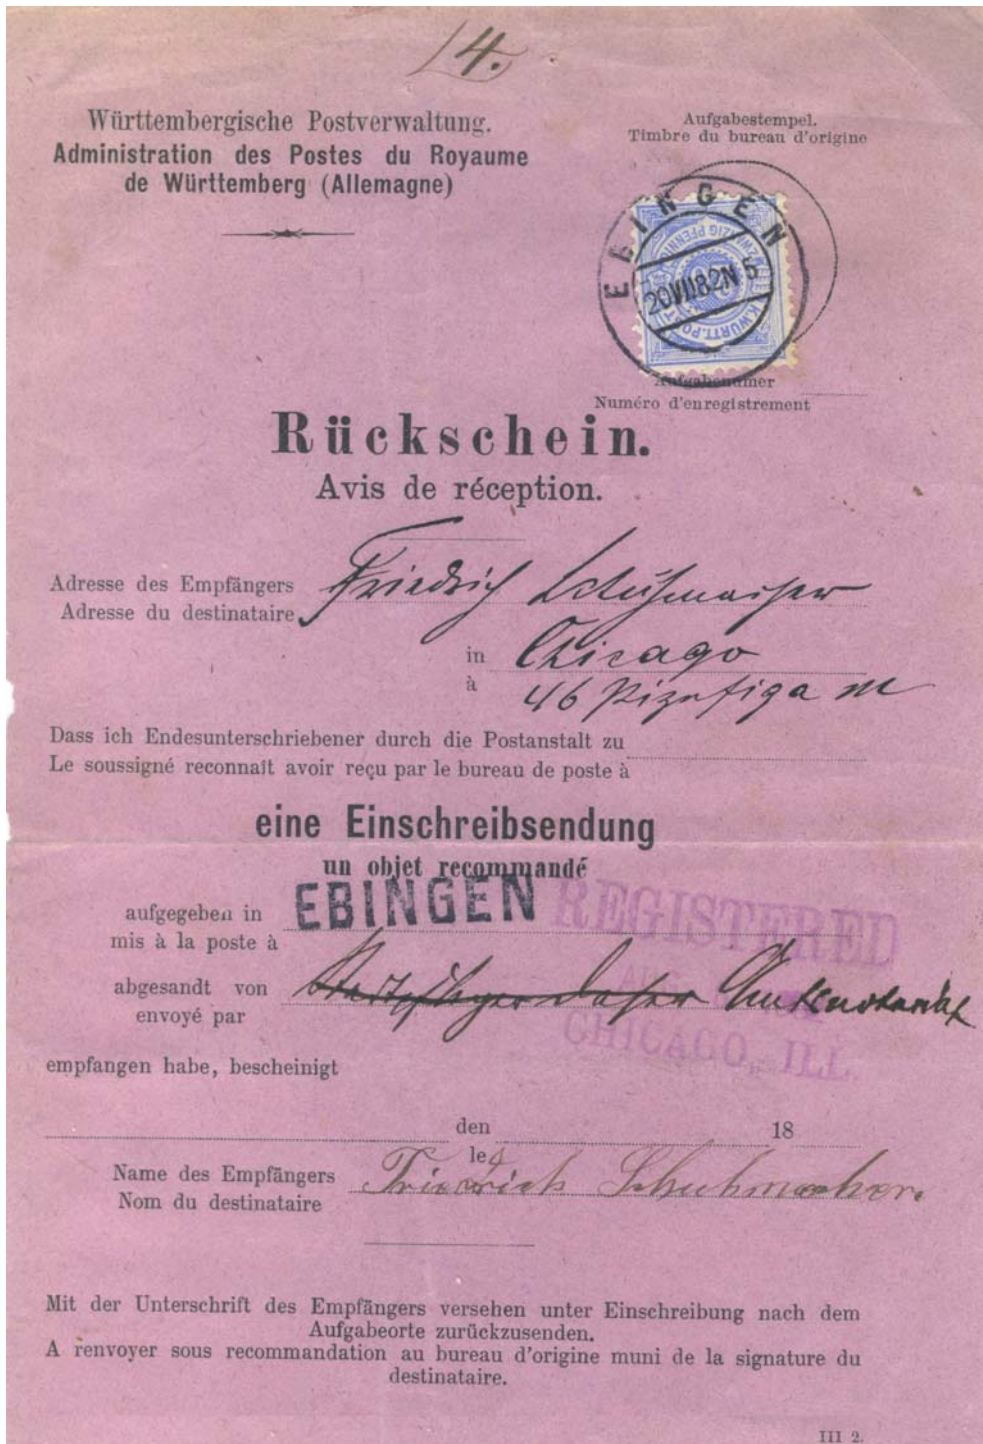 14.
Württembergische Postverwaltung.
Administration des Postes du Royaume
de Württemberg (Allemagne)
Aufgabestempel.
Timbre du bureau d'origine
EBINGEN
20 VII 82 N 5
ZWANZIG PFENNIG
K. WÜRTT. POST
20
Aufgabenumer
Numéro d'enregistrement
Rückschein.
Avis de réception.
Adresse des Empfängers Friedrich Schuhmacher
Adresse du destinataire
in Chicago
à 46
Dass ich Endesunterschriebener durch die Postanstalt zu
Le soussigné reconnaît avoir reçu par le bureau de poste à
eine Einschreibsendung
un objet recommandé
aufgegeben in EBINGEN
mis à la poste à
REGISTERED
AUG
CHICAGO, ILL.
abgesandt von Amtsnotariat
envoyé par
empfangen habe, bescheinigt
den 18
le
Name des Empfängers Friedrich Schuhmacher.
Nom du destinataire
Mit der Unterschrift des Empfängers versehen unter Einschreibung nach dem
Aufgabeorte zurückzusenden.
A renvoyer sous recommandation au bureau d'origine muni de la signature du
destinataire.
III 2.